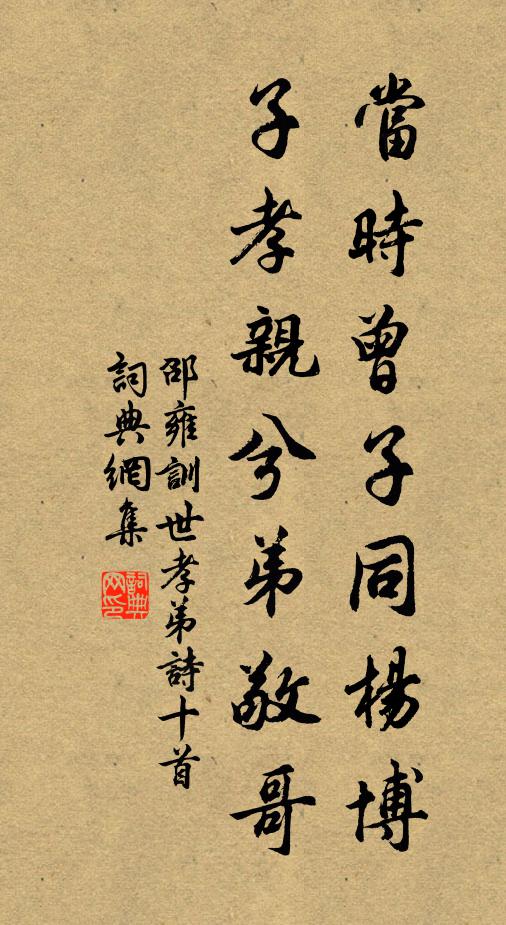 當時曾子同楊博
子孝親兮弟敬哥
邵雍訓世孝弟詩十首
詞典網集
詞典网印